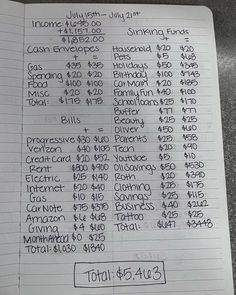 July 15th - July 21st
Income: $695.00
+ $1,157.00
$1,852.00
Sinking Funds
+ =
Cash Envelopes
+ =
Gas $35 $35
Spending $20 $20
Food $100 $100
Misc $20 $20
Total: $175 $175
Bills
+ =
Progressive $30 $60
Verizon $40 $105
Credit Card $20 $52
Rent $800 $900
Electric $25 $40
Internet $20 $40
Gas $10 $15
Car Note $75 $375
Amazon $6 $68
Giving $4 $60
Month Ahead $0 $25
Total: $1,030 $1840
Household $20 $20
Pets $5 $168
Holidays $50 $385
Birthday $100 $743
Car Maint $20 $185
Family Fun $40 $100
School loans $25 $170
Buffer $77 $77
Beauty $25 $25
Oliver $50 $60
Parents $25 $55
Tech $20 $90
Youtube $5 $10
Oli Savings $50 $530
Roth $20 $390
Clothing $25 $175
Savings $25 $115
Business $40 $262
Tattoo $25 $25
Total: $647 $3448
Total: $5,463